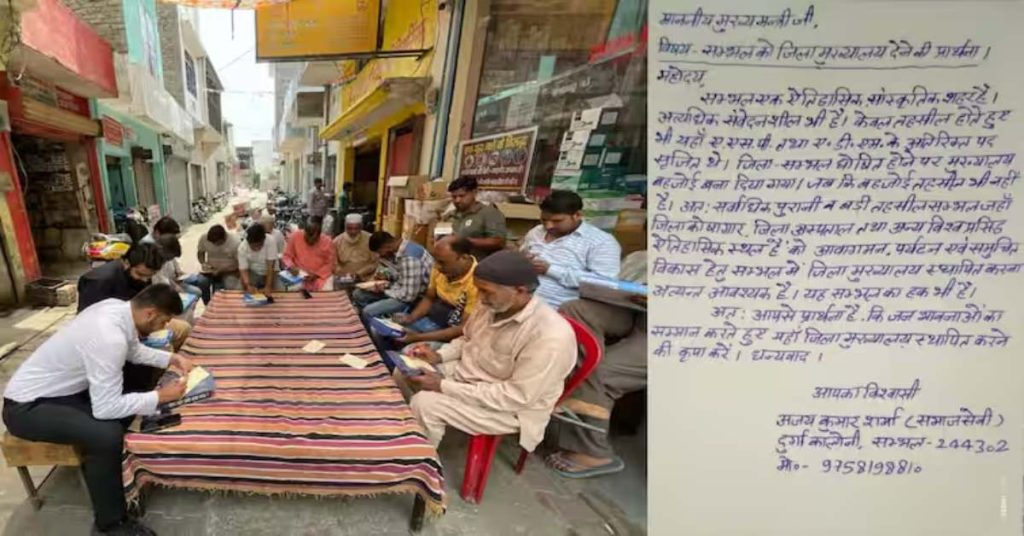 माननीय मुख्य मन्त्री जी,
विषय - सम्भल को जिला मुख्यालय देने की प्रार्थना ।
महोदय,
सम्भल एक ऐतिहासिक, सांस्कृतिक शहर है ।
अत्यधिक संवेदनशील भी है । केवल तहसील होते हुए
भी यहाँ ए.एस.पी. तथा ए.डी.एम. के अतिरिक्त पद
सृजित थे । जिला-सम्भल घोषित होने पर मुख्यालय
बहजोई बना दिया गया । जब कि बहजोई तहसील भी नहीं
है । अतः सर्वाधिक पुरानी व बड़ी तहसील सम्भल जहाँ
जिला कोषागार, जिला अस्पताल तथा अन्य विश्व प्रसिद्ध
ऐतिहासिक स्थल हैं को आवागमन, पर्यटन एवं समुचित
विकास हेतु सम्भल में जिला मुख्यालय स्थापित करना
अत्यन्त आवश्यक है । यह सम्भल का हक भी है ।
अतः आपसे प्रार्थना है, कि जन भावनाओं का
सम्मान करते हुए यहाँ जिला मुख्यालय स्थापित करने
की कृपा करें । धन्यवाद ।
आपका विश्वासी
अजय कुमार शर्मा (समाजसेवी)
दुर्गा कालोनी, सम्भल - 244302
मो०- 9758198810